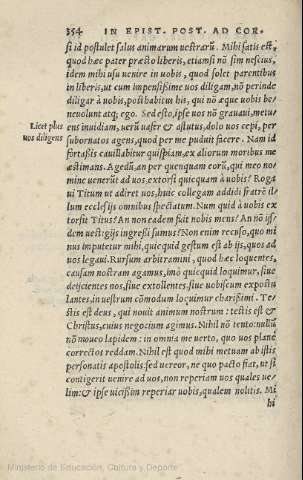 354 IN EPIST. POST. AD COR.
si id postulet salus animarum uestrarũ. Mihi satis est,
quod hæc pater præsto liberis, etiamsi nõ sim nescius,
idem mihi usu uenire in uobis, quod solet parentibus
in liberis, ut cum impensissime uos diligam, nõ perinde
diligar à uobis, posthabitus his, qui nõ æque uobis be/
neuolunt atq; ego. Sed esto, ipse uos nõ grauaui, metu/
Licet plus
uos diligens
ens inuidiam, uerũ uafer & astutus, dolo uos cepi, per
subornatos agens, quod per me puduit facere. Nam id
fortassis cauillabitur quispiam, ex aliorum moribus me
æstimans. Agedũ, an per quenquam eorũ, qui meo no/
mine uenerũt ad uos, extorsi quicquam à uobis? Roga
ui Titum ut adiret uos, huic collegam addidi fratrẽ il/
lum ecclesijs omnibus spectatum. Num quid à uobis ex
torsit Titus? An non eadem fuit nobis mens? An nõ ijs/
dem uestigijs ingressi sumus? Non enim recuso, quo mi
nus imputetur mihi, quicquid gestum est ab ijs, quos ad
uos legaui. Rursum arbitramini, quod hæc loquentes,
causam nostram agamus, imò quicquid loquimur, siue
deijcientes nos, siue extollentes, siue uobiscum expostu
lantes, in uestrum cõmodum loquimur charissimi. Te/
stis est deus, qui nouit animum nostrum: testis est &
Christus, cuius negocium agimus. Nihil nõ tento: nullũ
nõ moueo lapidem: in omnia me uerto, quo uos plane
correctos reddam. Nihil est quod mihi metuam ab istis
personatis apostolis, sed uereor, ne quo pacto fiat, ut si
contigerit uenire ad uos, non reperiam uos quales ue/
lim: & ipse uicissim reperiar uobis, qualem nolitis. Mi
hi
Ministerio de Educación, Cultura y Deporte